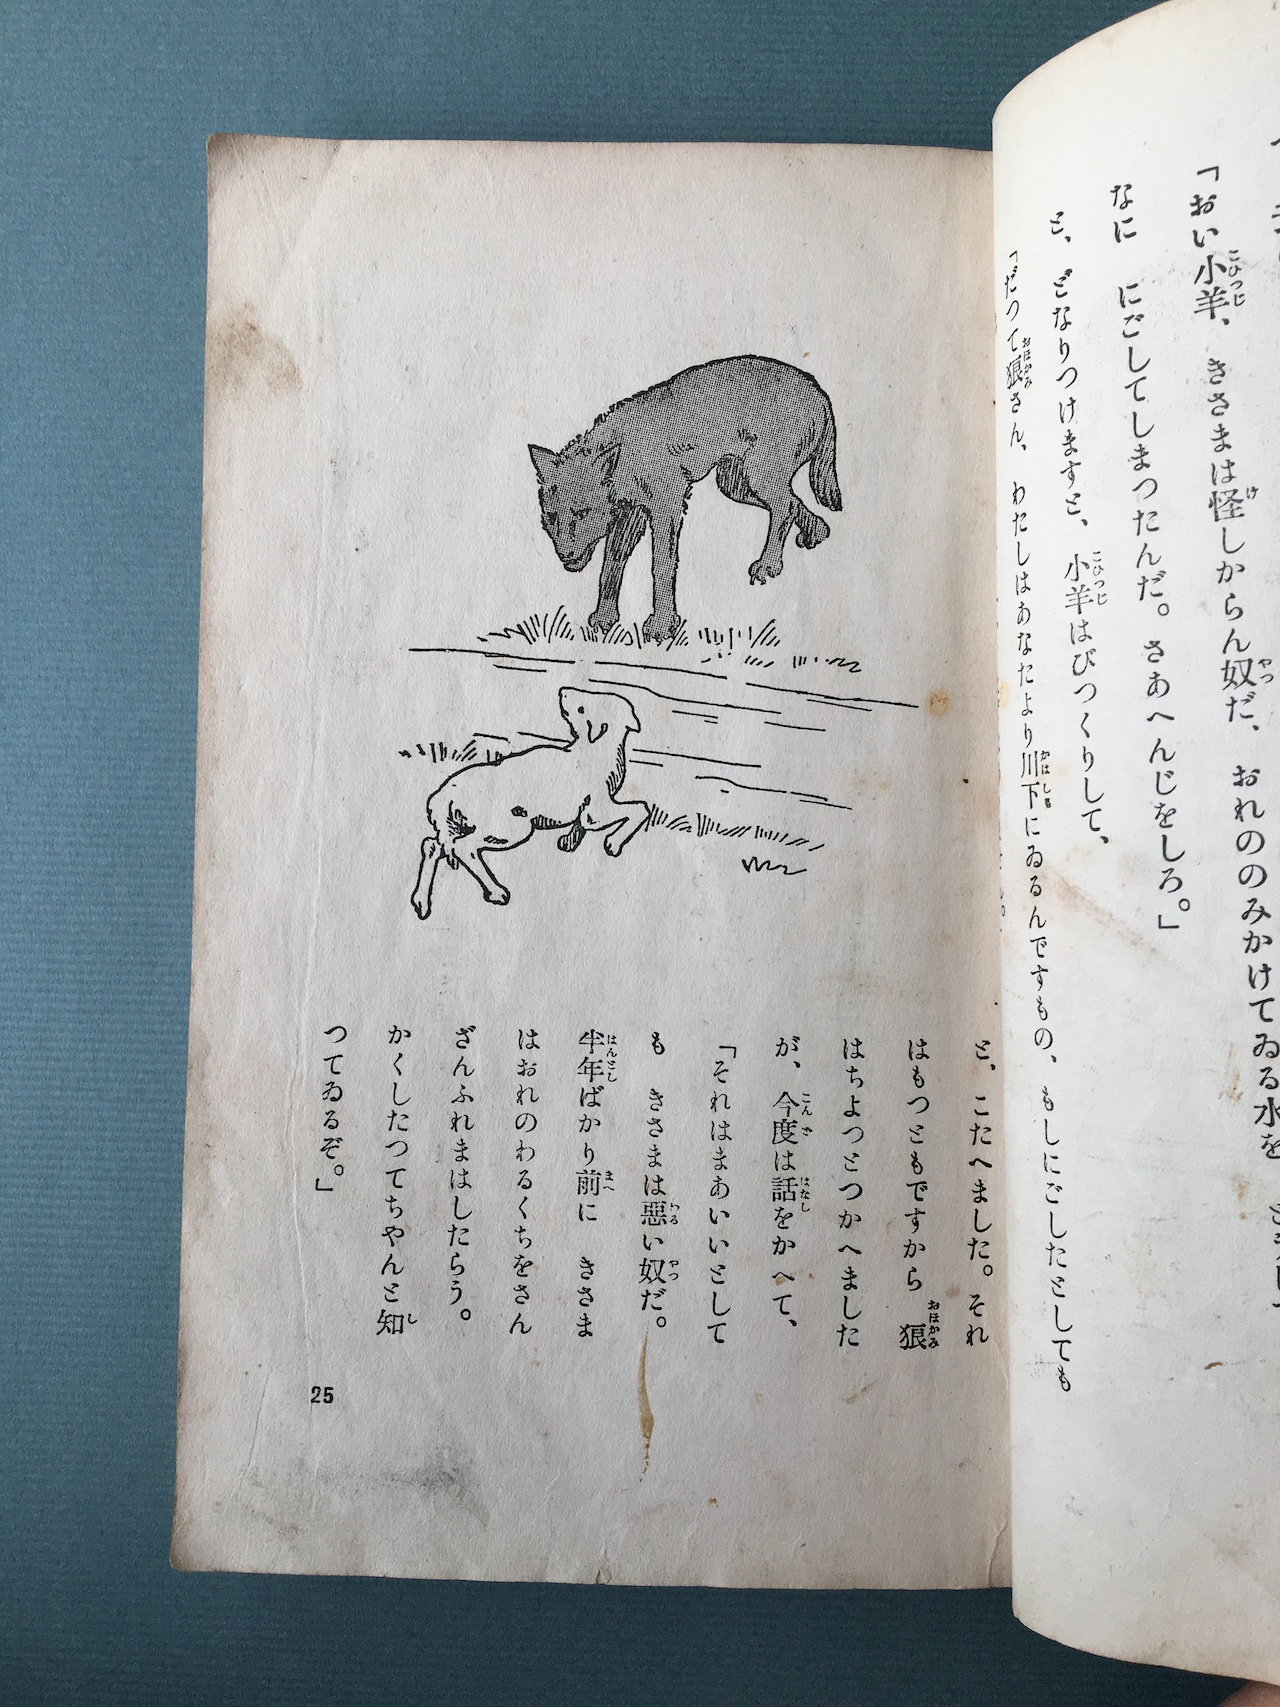 「おい小羊、きさまは怪しからん奴だ、おれののみかけてゐる水を
なに にごしてしまつたんだ。さあへんじをしろ。」
と、どなりつけますと、小羊はびつくりして、
「だつて狼さん、わたしはあなたより川下にゐるんですもの、もしにごしたとしても
と、こたへました。それ
はもつともですから 狼
はちよつとつかへました
が、今度は話をかへて、
「それはまあいいとして
も きさまは悪い奴だ。
半年ばかり前に きさま
はおれのわるくちをさん
ざんふれまはしたらう。
かくしたつてちやんと知
つてゐるぞ。」
25